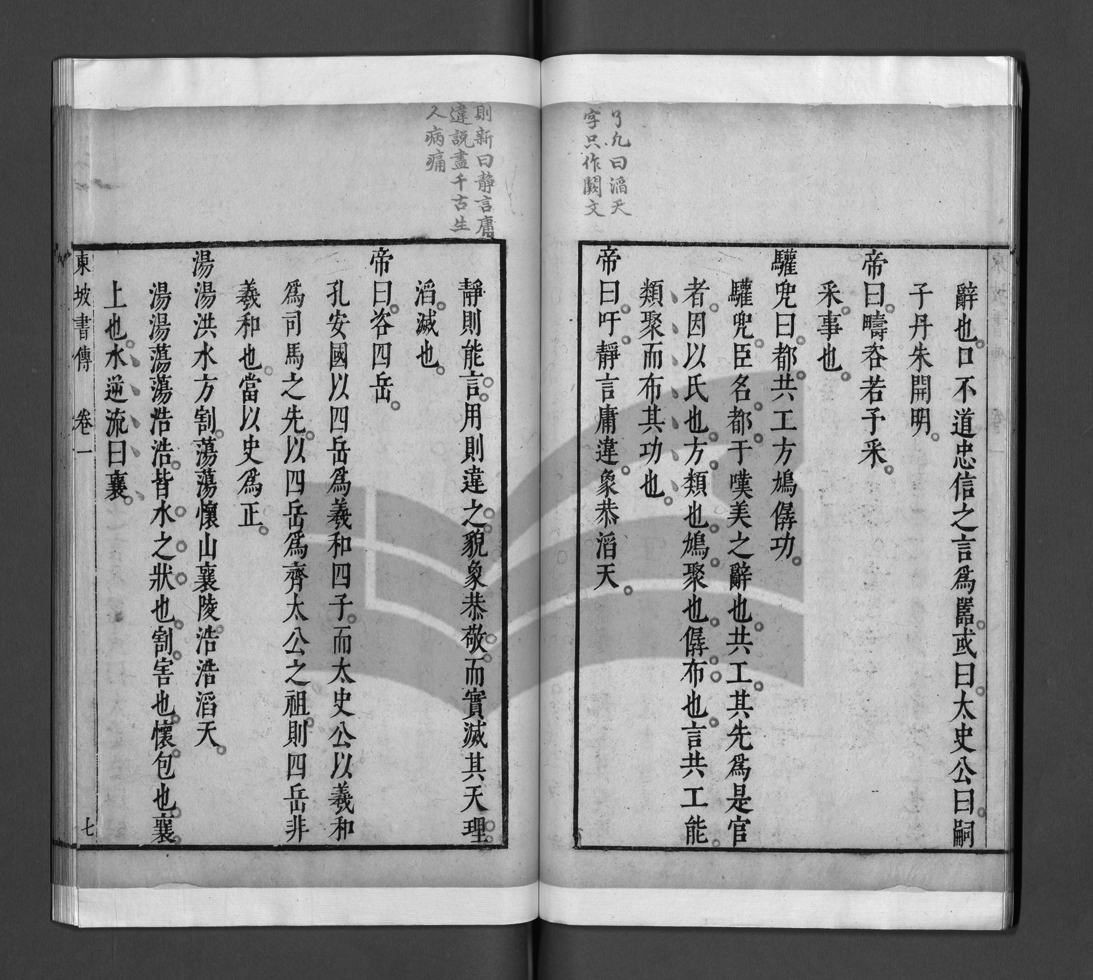 了凡曰滔天
字只作闕文
辭也。口不道忠信之言爲嚚。或曰。太史公曰。嗣
子丹朱開明。
帝曰。疇咨若予采。
采。事也。
驩兜曰。都。共工方鳩僝功。
驩兜。臣名。都。于嘆美之辭也。共工。其先爲是官
者。因以氏也。方。類也。鳩。聚也。僝。布也。言共工能
類聚而布其功也。
帝曰。吁。靜言庸違。象恭滔天。
則新曰靜言庸
違說盡千古生
人病痛
靜則能言。用則違之。貌象恭敬。而實滅其天理。
滔。滅也。
帝曰。咨四岳。
孔安國以四岳爲羲和四子。而太史公以羲和
爲司馬之先。以四岳爲齊太公之祖。則四岳非
羲和也。當以史爲正。
湯湯洪水方割。蕩蕩懷山襄陵。浩浩滔天。
湯湯蕩蕩浩浩。皆水之狀也。割。害也。懷。包也。襄。
上也。水逆流曰襄。
東坡書傳 卷一 七